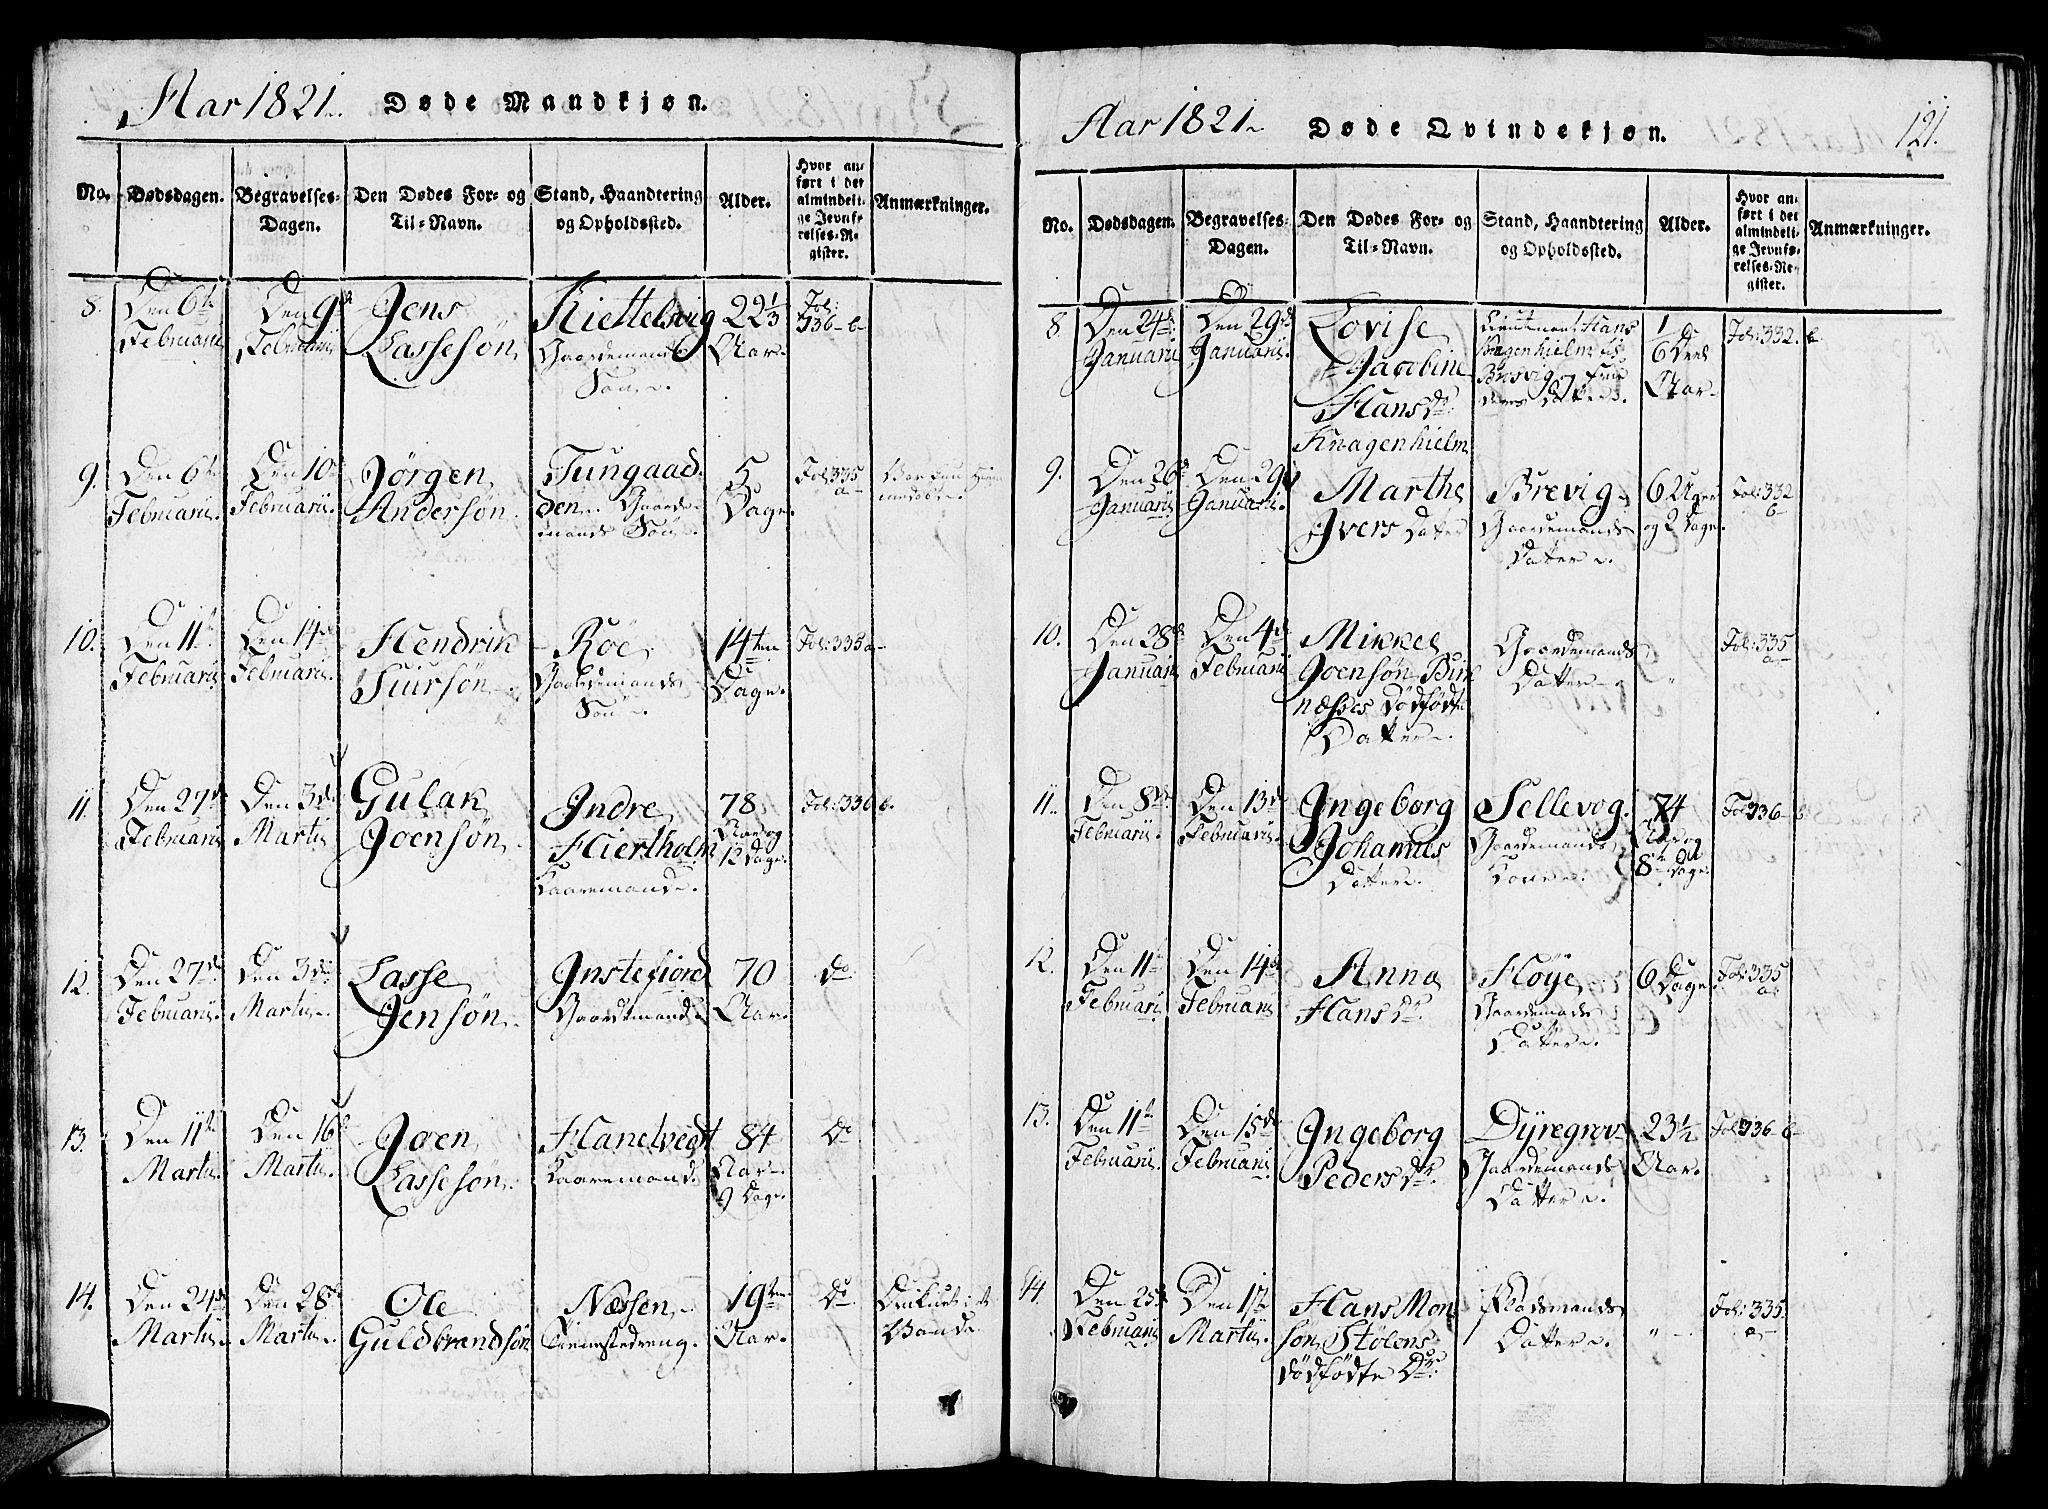 Aar 1821. Døde Mandkjøn.
No. Dødsdagen. Begravelses-Dagen. Den Dødes For- og Til-Navn. Stand, Haandtering og Opholdssted. Alder. Hvor anført i det almindelige Jevnførelses-Register. Anmærkninger.
8. Den 6te Februarii Den 9de Februarii Jens Lassesøn Kiettelsvig Gaardemands Søn. 22 1/3 Aar. Fol: 336 b
9. Den 6te Februarii. Den 10de Februarii. Jørgen Andersøn Tungaadden. Gaardemands Søn. 5 Dage. Fol: 335 a
10. Den 11te Februarii Den 14de Februarii. Hendrik Siursøn Röe Gaardemands Søn. 14ten Dage. Fol: 335 a
11. Den 27de Februarii Den 3die Martii Gulak Joensøn Indre Hiertholm Kaaremand. 78 Aar og 12 Dage. Fol: 336 b.
12. Den 27de Februarii. Den 3die Martii. Lasse Jensøn Instefiord Gaardemand 70 Aar. Do
13. Den 11te Martii. Den 16de Martii. Joen Lassesøn. Hanelvedt Kaaremand. 84 Aar 9 Dage. Do
14. Den 24de Martii. Den 28de Martii. Ole Guldbrandsøn Næssen Tienestedreng. 19ten Aar. Do. Druknet i et Vande
Aar 1821 Døde Qvindekjøn. 121.
No. Dødsdagen. Begravelses-Dagen. Den Dødes For- og Til-Navn. Stand, Haandtering og Opholdssted. Alder. Hvor anført i det almindelige Jevnførelses-Register. Anmærkninger.
8. Den 24de Januarii Den 29de Januarii. Lovise Jacobine Hans Dr. Knagenhielm Lieutnant Hans Datter. 1/6 Deel Aar Fol: 332. b
9. Den 26de Januarii Den 29de Januarii. Marthe Ivers Datter Brevig Gaardemands Datter. 6 Uger og 2 Dage. Fol: 332 b
10. Den 28de Januarii Den 4de Februarii Mikkel Joensøn Birknæsses Dödfödte Datter. Gaardemands Datter " Fol: 335 a
11. Den 8de Februarii. Den 13de Februarii. Ingeborg Johannes Datter. Sellevog. Gaardemands Kone. 74 Aar og 8te Dage. Fol: 336 b
12. Den 11te Februarii Den 14de Februarii Anna Hans Dr. Höye Gaardemands Datter. 6 Dage Fol: 335 a.
13. Den 11te Februarii. Den 15de Februarii Ingeborg Peders Dr. Dyregrov Gaardemands Datter. 23 1/2 Aar. Fol: 336 b
14. Den 25de Februarii Den 1ste Martii. Hans Monsøn Stolens dödfödte Dr. Pladsmands Datter. " Fol: 335. a